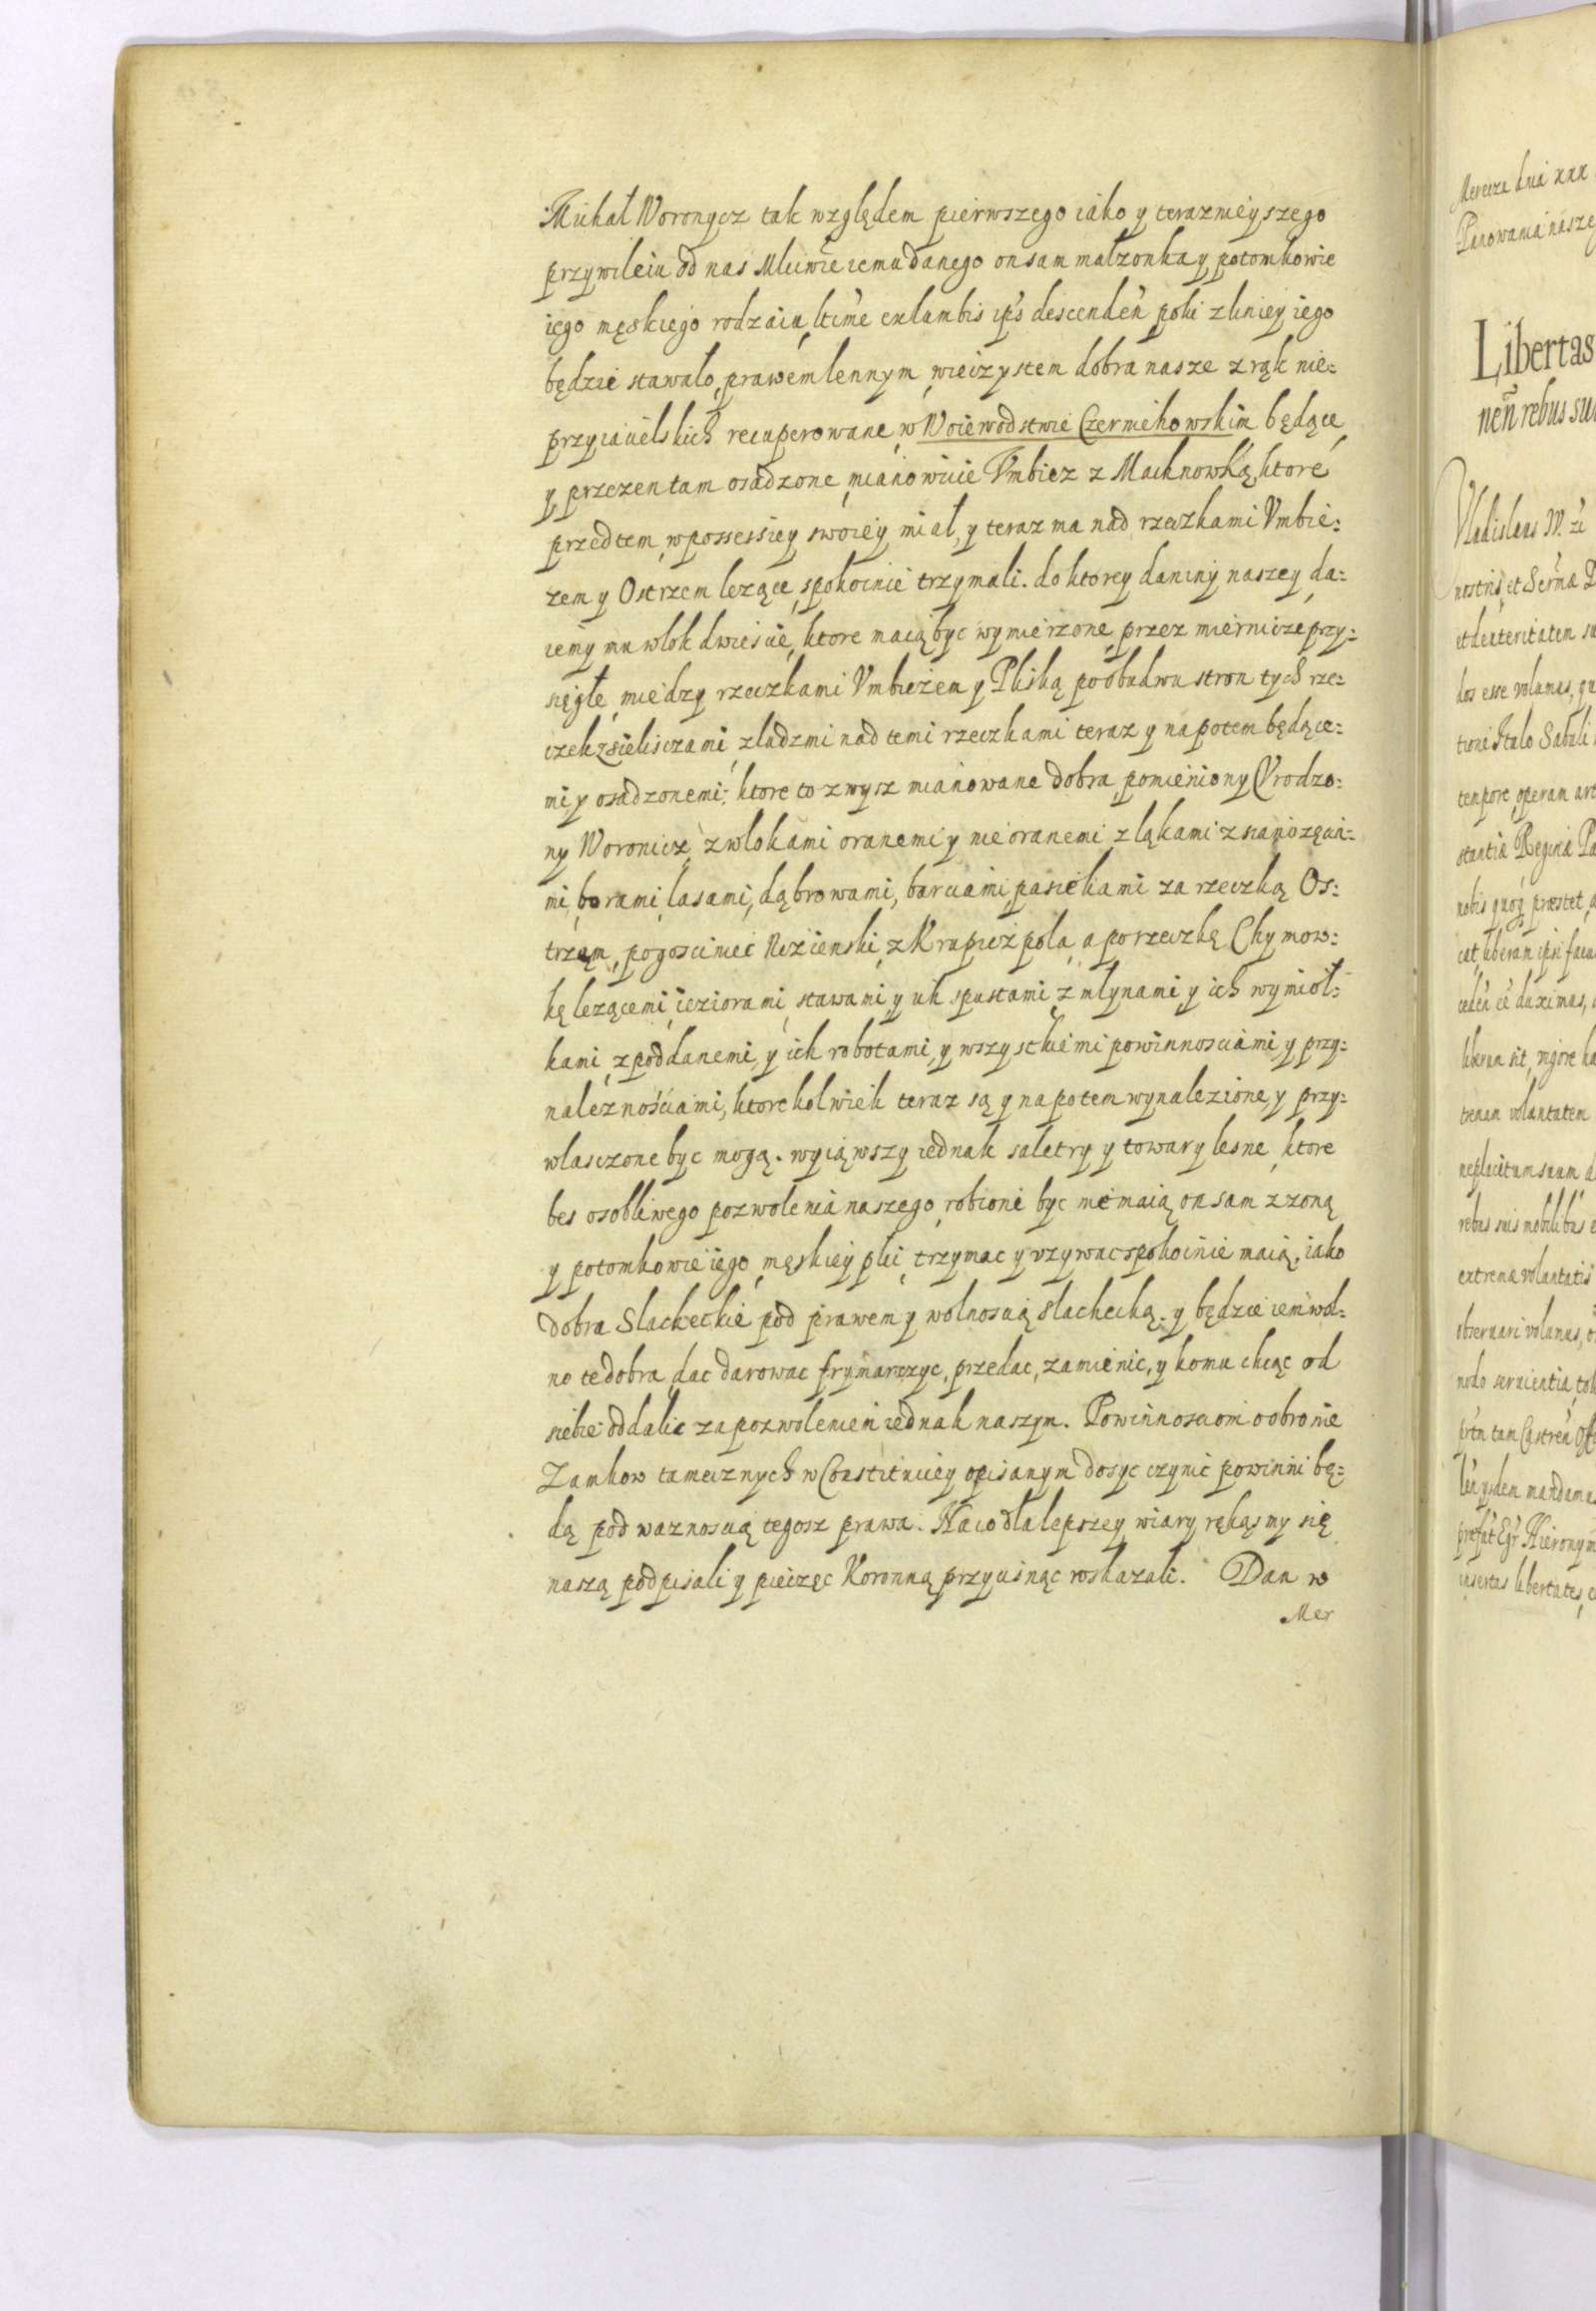 Michał Woronycz tak względem pierwszego iako y teraznieyszego
przywileiu od nas Mściwie iemu danego on sam małzonka y potomkowie
iego męskiego rodzaiu, ltime ex lumbis ips descenden poki z liniey iego
będzie stawało, prawem lennym, wieczystem dobra nasze z rąk nie=
przyiacielskich recuperowane, w Woiewodstwie Czerniehowskim będące
y przezen tam osadzone, mianowicie Vmbiez z Machnowką, ktore
przedtem, w possessiey swoiey miał, y teraz ma nad rzeczkami Vmbie=
zem y Ostrzem lezące, spokoinie trzymali. do ktorey daniny naszey da=
iemy mu wlok dwieście, ktore maią byc wymierzone, przez miernicze przy=
sięgłe, między rzeczkami Vmbieżem y Pliską po obudwu stron tych rze=
czek z sieliszczami, z ludzmi nad temi rzeczkami teraz y napotem będące=
mi y osadzonemi; ktore to zwysz mianowane dobra, pomieniony Vrodzo=
ny Woronicz, z wlokami oranemi y nieoranemi z ląkami z sianozęcia=
mi, borami, lasami, dąbrowami, barciami, pasiekami za rzeczką Os=
trzem, po gosciniec Nieżienski, z Krupicz pola, a po rzeczkę Chymow=
kę lezącemi, ieziorami, stawami, y ich spustami, z młynami y ich wymioł=
kami, z poddanemi, y ich robotami, y wszystkiemi powinnosciami y przy=
należnościami, ktorekolwiek teraz są y napotem wynalezione y przy=
wlasczone byc mogą. wyiąwszy iednak saletry y towary lesne, ktore
bes osobliwego pozwolenia naszego, robione byc nie maią, on sam z zoną
y potomkowie iego, męskiey płci, trzymac y vzywac spokoinie maią, iako
dobra Slacheckie pod prawem y wolnoscią slachecką. y będzie iem wol=
no te dobra, dac darowac frymarczyc, przedac, zamienic, y komu chcąc od
siebie oddalic za pozwoleniem iednak naszym. Powinnosciom o obronie
Zamkow tamecznych w Constituciey opisanym dosyc czynic powinni bę=
dą pod waznoscią tegosz prawa. Na co dla lepszey wiary rękąsmy się
naszą podpisali y pieczęc Koronną przycisnąc roskazali. Dan w
Mer
Merecza dnia XXX
Panowania nasze
Libertas
nen rebus su
Vladislaus IV. 
nostris, et Serma
et dexteritatem su
dos esse volumus, qu
tione Italo
tempore operam
stantia Regina
nobis quoq praestet
cat, liberam ipsi facu
duximus,
liberum sit, vigore
tremam voluntatem
neplacitum suum
rebus suis mobilibus
extrema voluntatis
observari volumus,
modo
tam Castren
mandamus
Hieronym
insertas libertates,